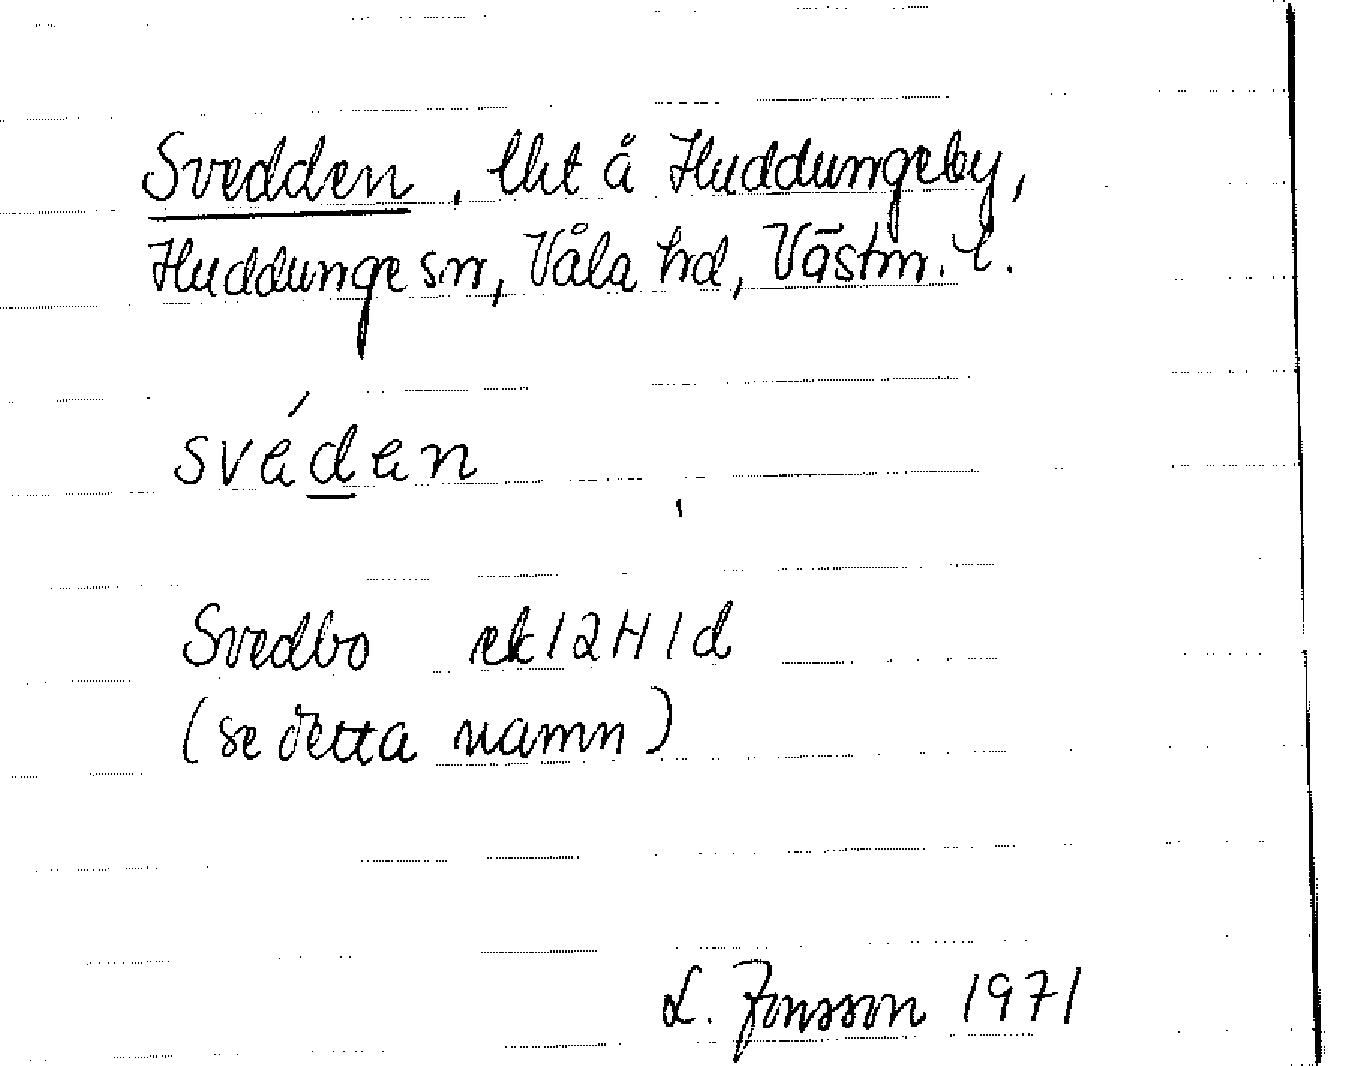 Svedden, lht å Huddungeby,
Huddunge sn, Våla hd, Västm. l.
svédan
Svedbo ek 12H1d
(se detta namn)
L. Jonsson 1971